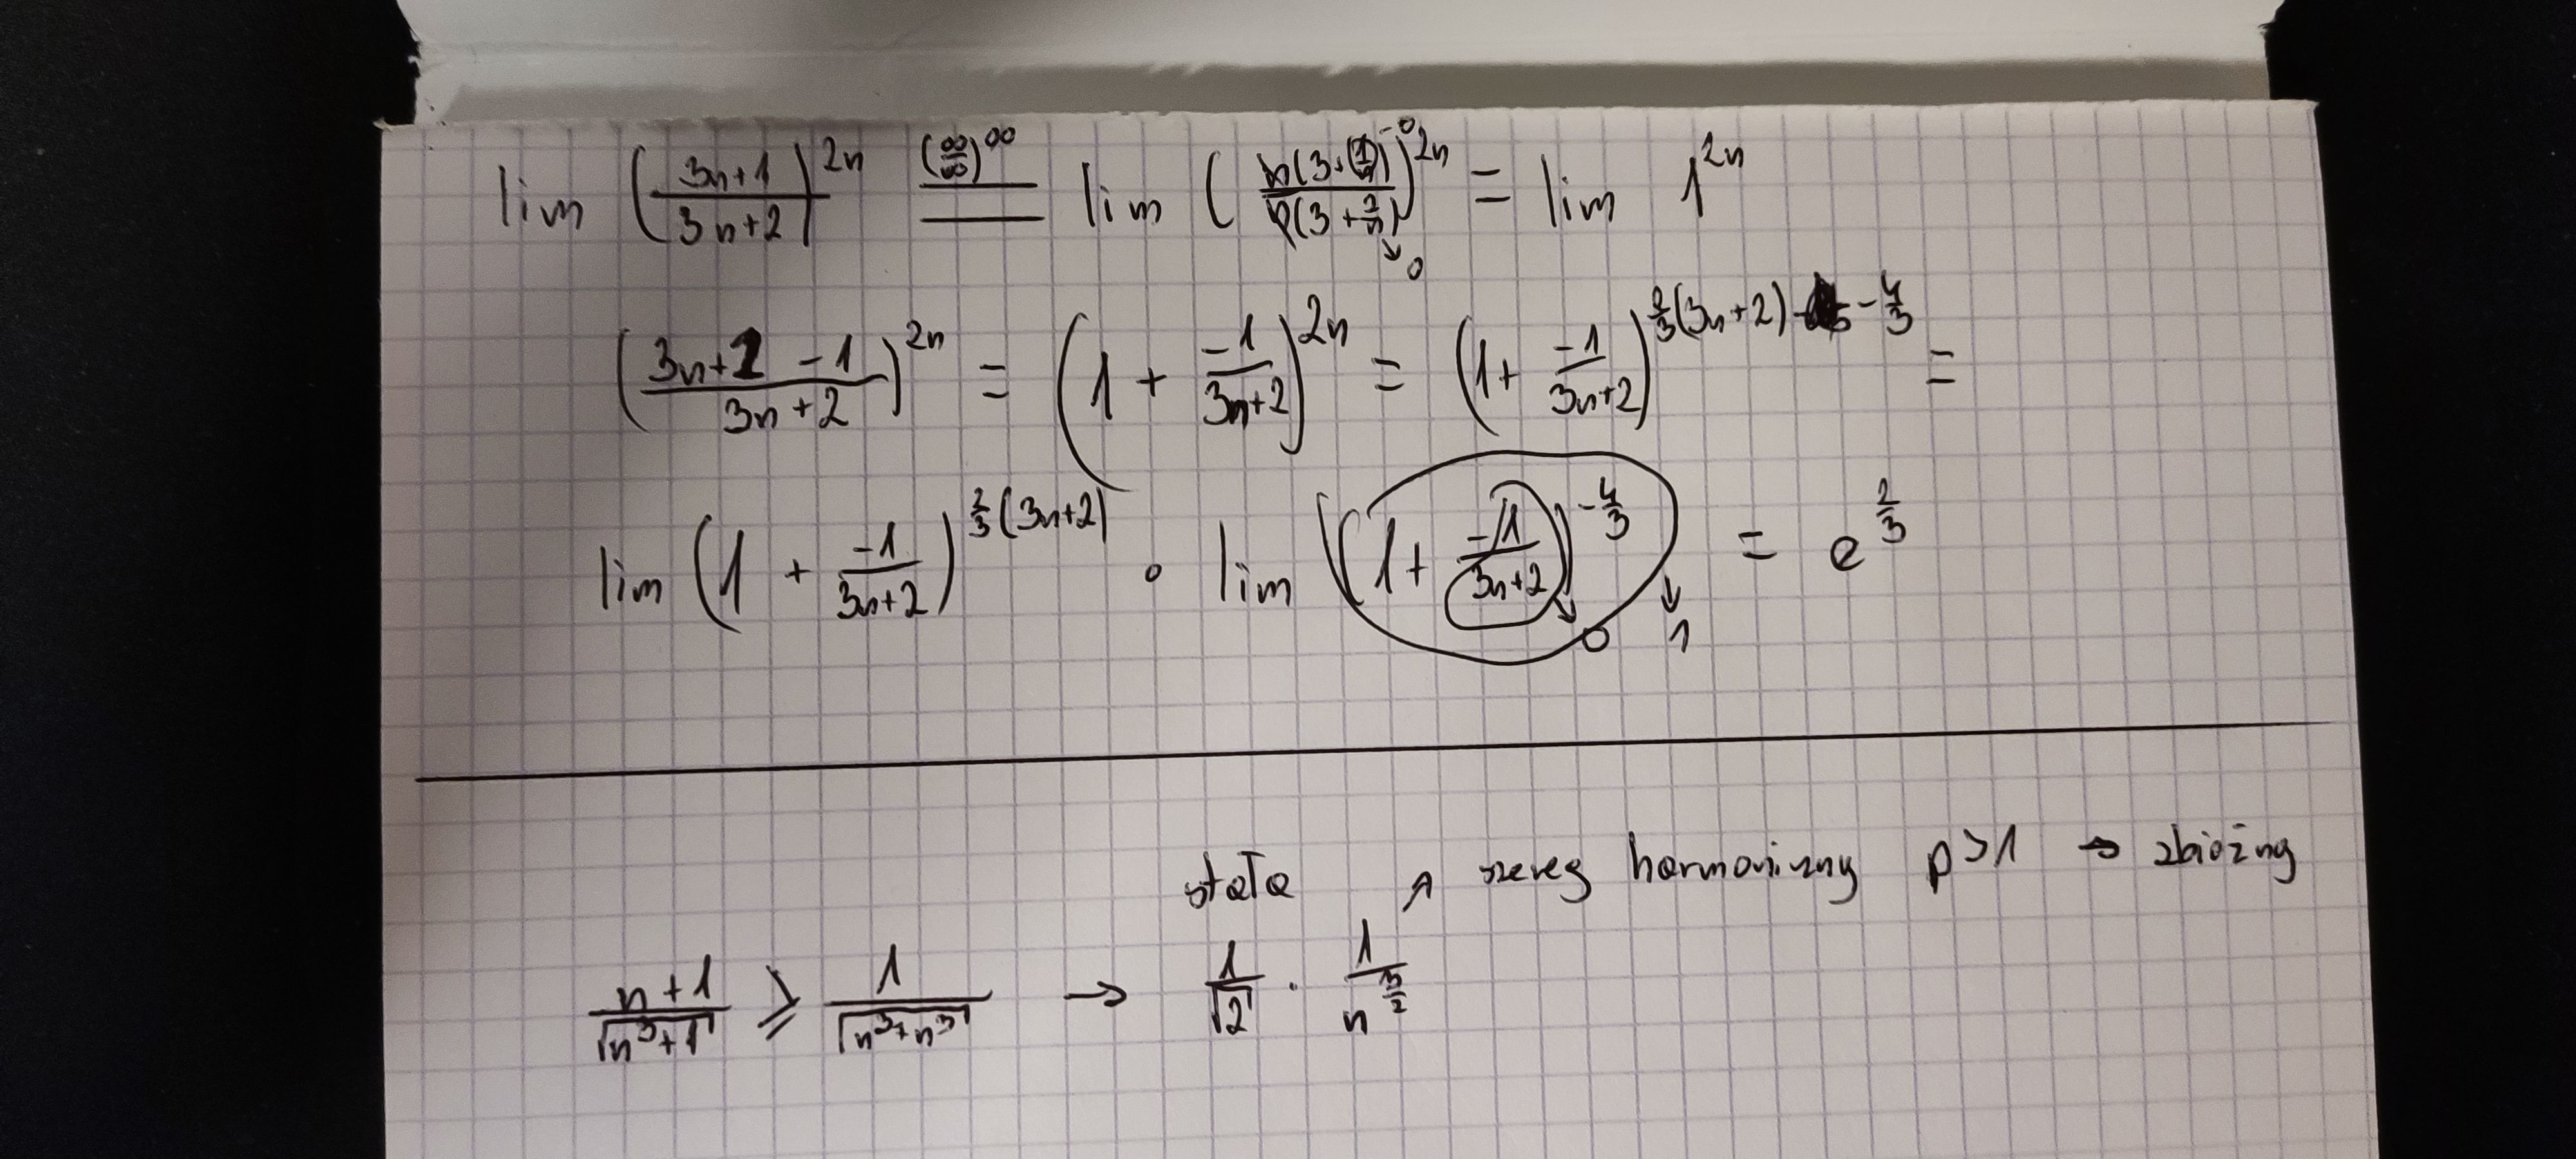 lim (3n+1 / 3n+2)^2n =^(∞/∞)^∞ lim (n(3+(1/n)) / n(3+2/n))^2n = lim 1^2n
→0 ↘0
(3n+2 -1 / 3n+2)^2n = (1 + -1/3n+2)^2n = (1+ -1/3n+2)^2/3(3n+2) - 4/3 =
lim (1 + -1/3n+2)^2/3(3n+2) · lim (1+ -1/3n+2)^-4/3 = e^2/3
↘0 ↓1
stała ↗ szereg harmoniczny p>1 → zbieżny
n+1/√n³+1 ≥ 1/√n³+n³ → 1/√2 · 1/n^3/2